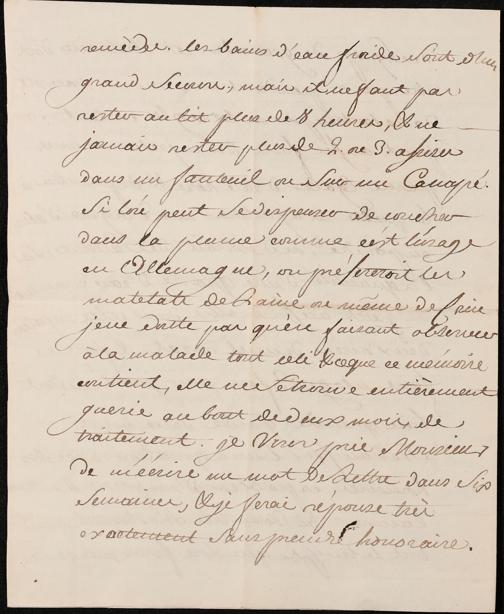 remède. les bains d'eau froide sont d'un
grand secours, mais il ne faut pas
rester au lit plus de 8 heures, & ne
jamais rester plus de 2. ou 3. assise
dans un fauteuil ou sur un Canapé.
Si l'on peut se dispenser de coucher
dans la plume comme c'est l'usage
en Allemagne, on préfereroit les
matelats de laine ou même de crin
je ne doute pas qu'en faisant observer
à la malade tout cela & ce que ce mémoire
contient, elle ne se trouve entièrement
guerie au bout de deux mois de
traitement. je Vous prie Monsieur
de m'écrire un mot de Lettre dans Six
Semaines, & je ferai réponse très
exactement sans prendre honoraire.